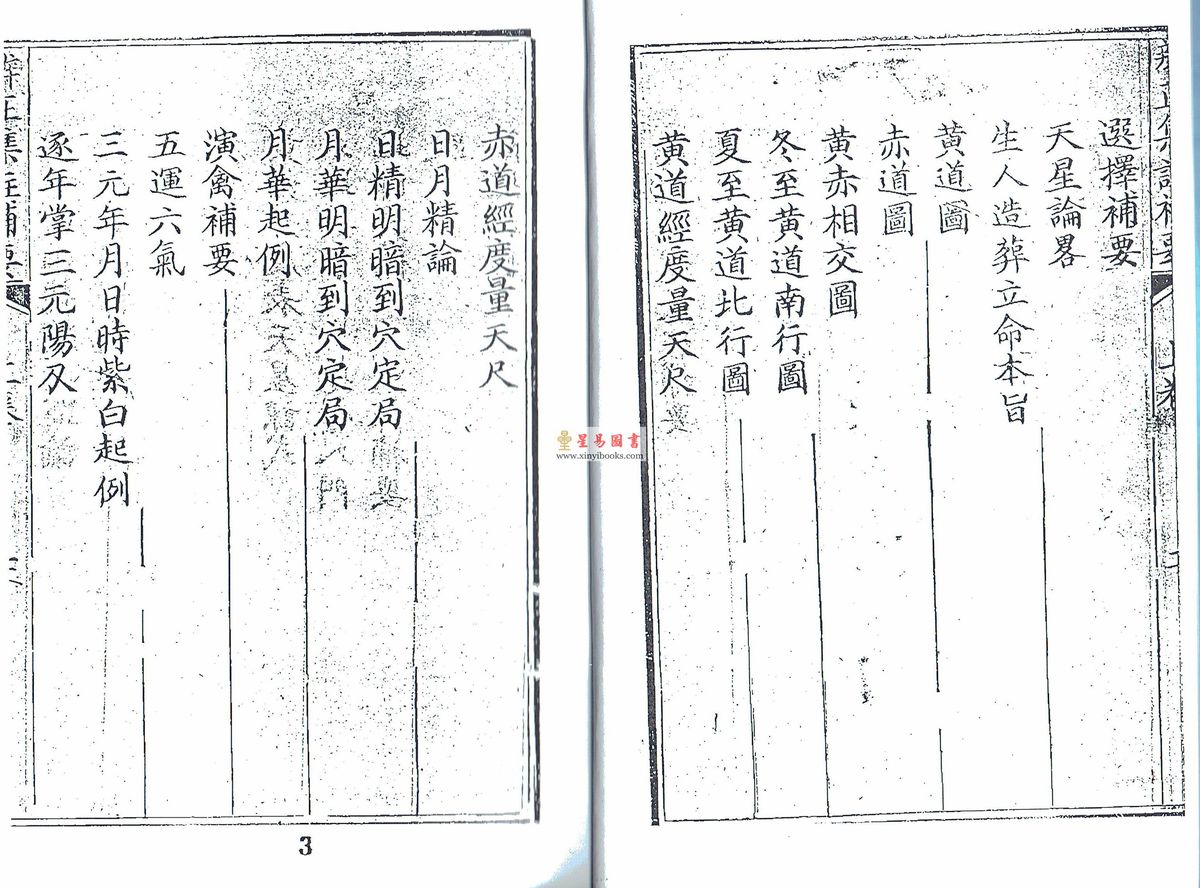 選擇補要
天星論畧
生人造葬立命本旨
黃道圖
赤道圖
黃赤相交圖
冬至黃道南行圖
夏至黃道北行圖
黃道經度量天尺
赤道經度量天尺
日月精論
日精明暗到穴定局
月華明暗到穴定局
月華起例
演禽補要
五運六氣
三元年月日時紫白起例
逐年掌三元陽刄
3
星易圖書
www.xinyibooks.com